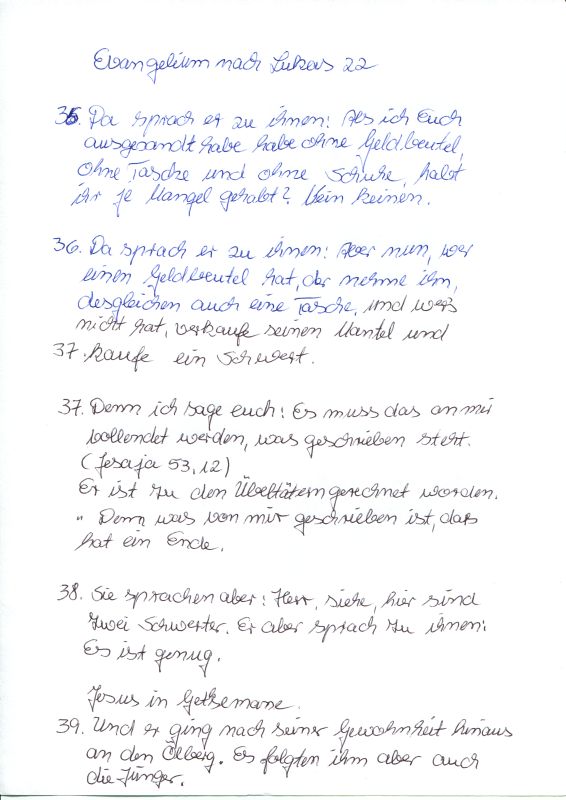 Evangelium nach Lukas 22
35. Da sprach er zu ihnen: Als ich Euch
ausgesandt habe habe ohne Geldbeutel,
ohne Tasche und ohne Schuhe, habt
ihr je Mangel gehabt? Nein keinen.
36. Da sprach er zu ihnen: Aber nun, wer
einen Geldbeutel hat, der nehme ihn,
desgleichen auch eine Tasche, und wers
nicht hat, verkaufe seinen Mantel und
37. kaufe ein Schwert.
37. Denn ich sage euch: Es muss das an mir
vollendet werden, was geschrieben steht.
(Jesaja 53,12)
Er ist zu den Übeltätern gerechnet worden.
" Denn was von mir geschrieben ist, das
hat ein Ende.
38. Sie sprachen aber: Herr, siehe, hier sind
zwei Schwerter. Er aber sprach zu ihnen:
Es ist genug.
Jesus in Gethsemane.
39. Und er ging nach seiner Gewohnheit hinaus
an den Ölberg. Es folgten ihm aber auch
die Jünger.